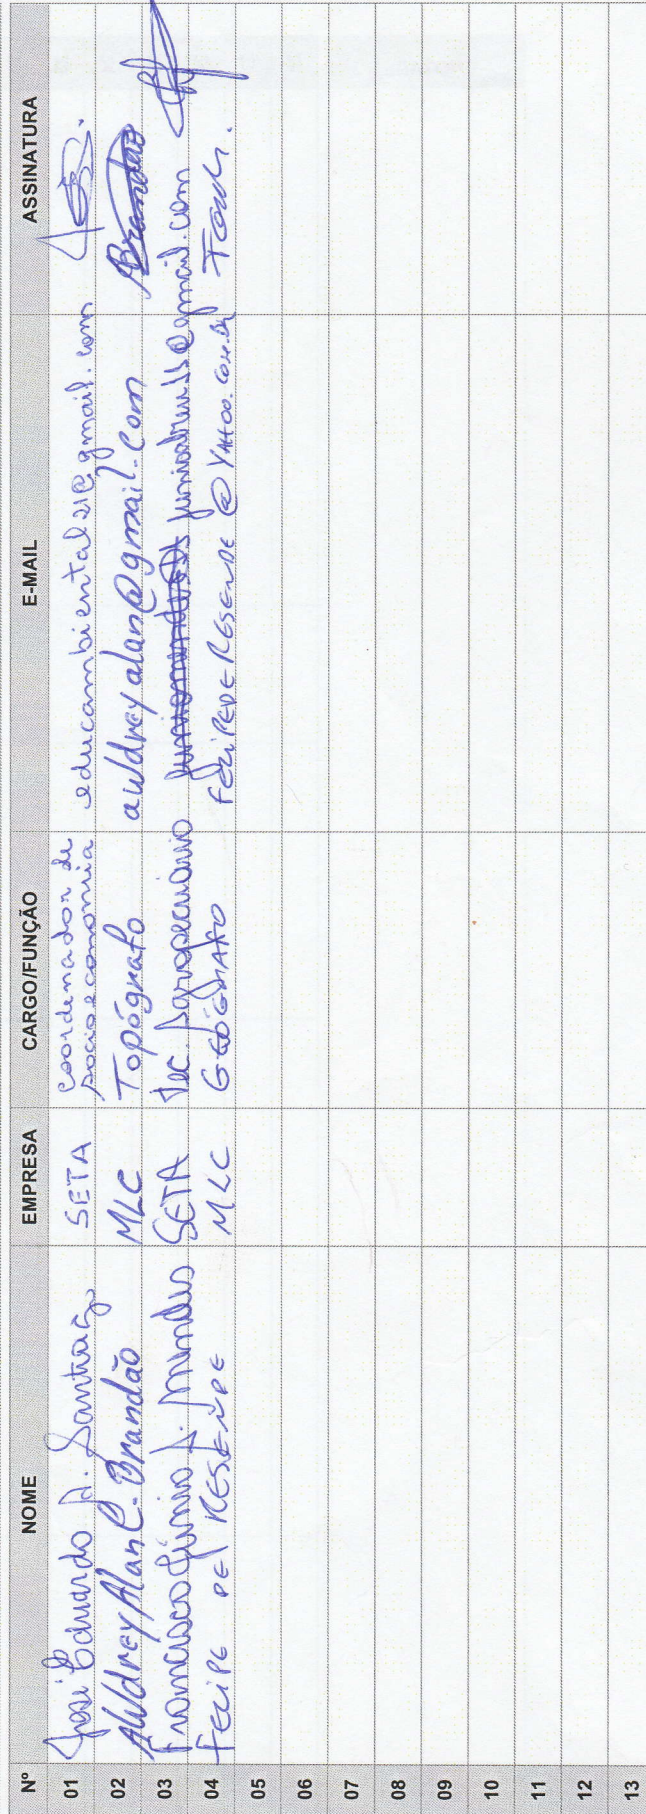 Nº NOME EMPRESA CARGO/FUNÇÃO E-MAIL ASSINATURA
01 José Eduardo A. Santiago SETA Coordenador de
socioeconomia educambiental21@gmail.com
02 Awdrey Alan C. Brandão MLC Topógrafo awdreyalan@gmail.com Brandão
03 Francisco Júnior A. Mendes SETA Tec. Agropecuário
04 Felipe de Resende MLC Geógrafo felipederesende@yahoo.com.br
05
06
07
08
09
10
11
12
13